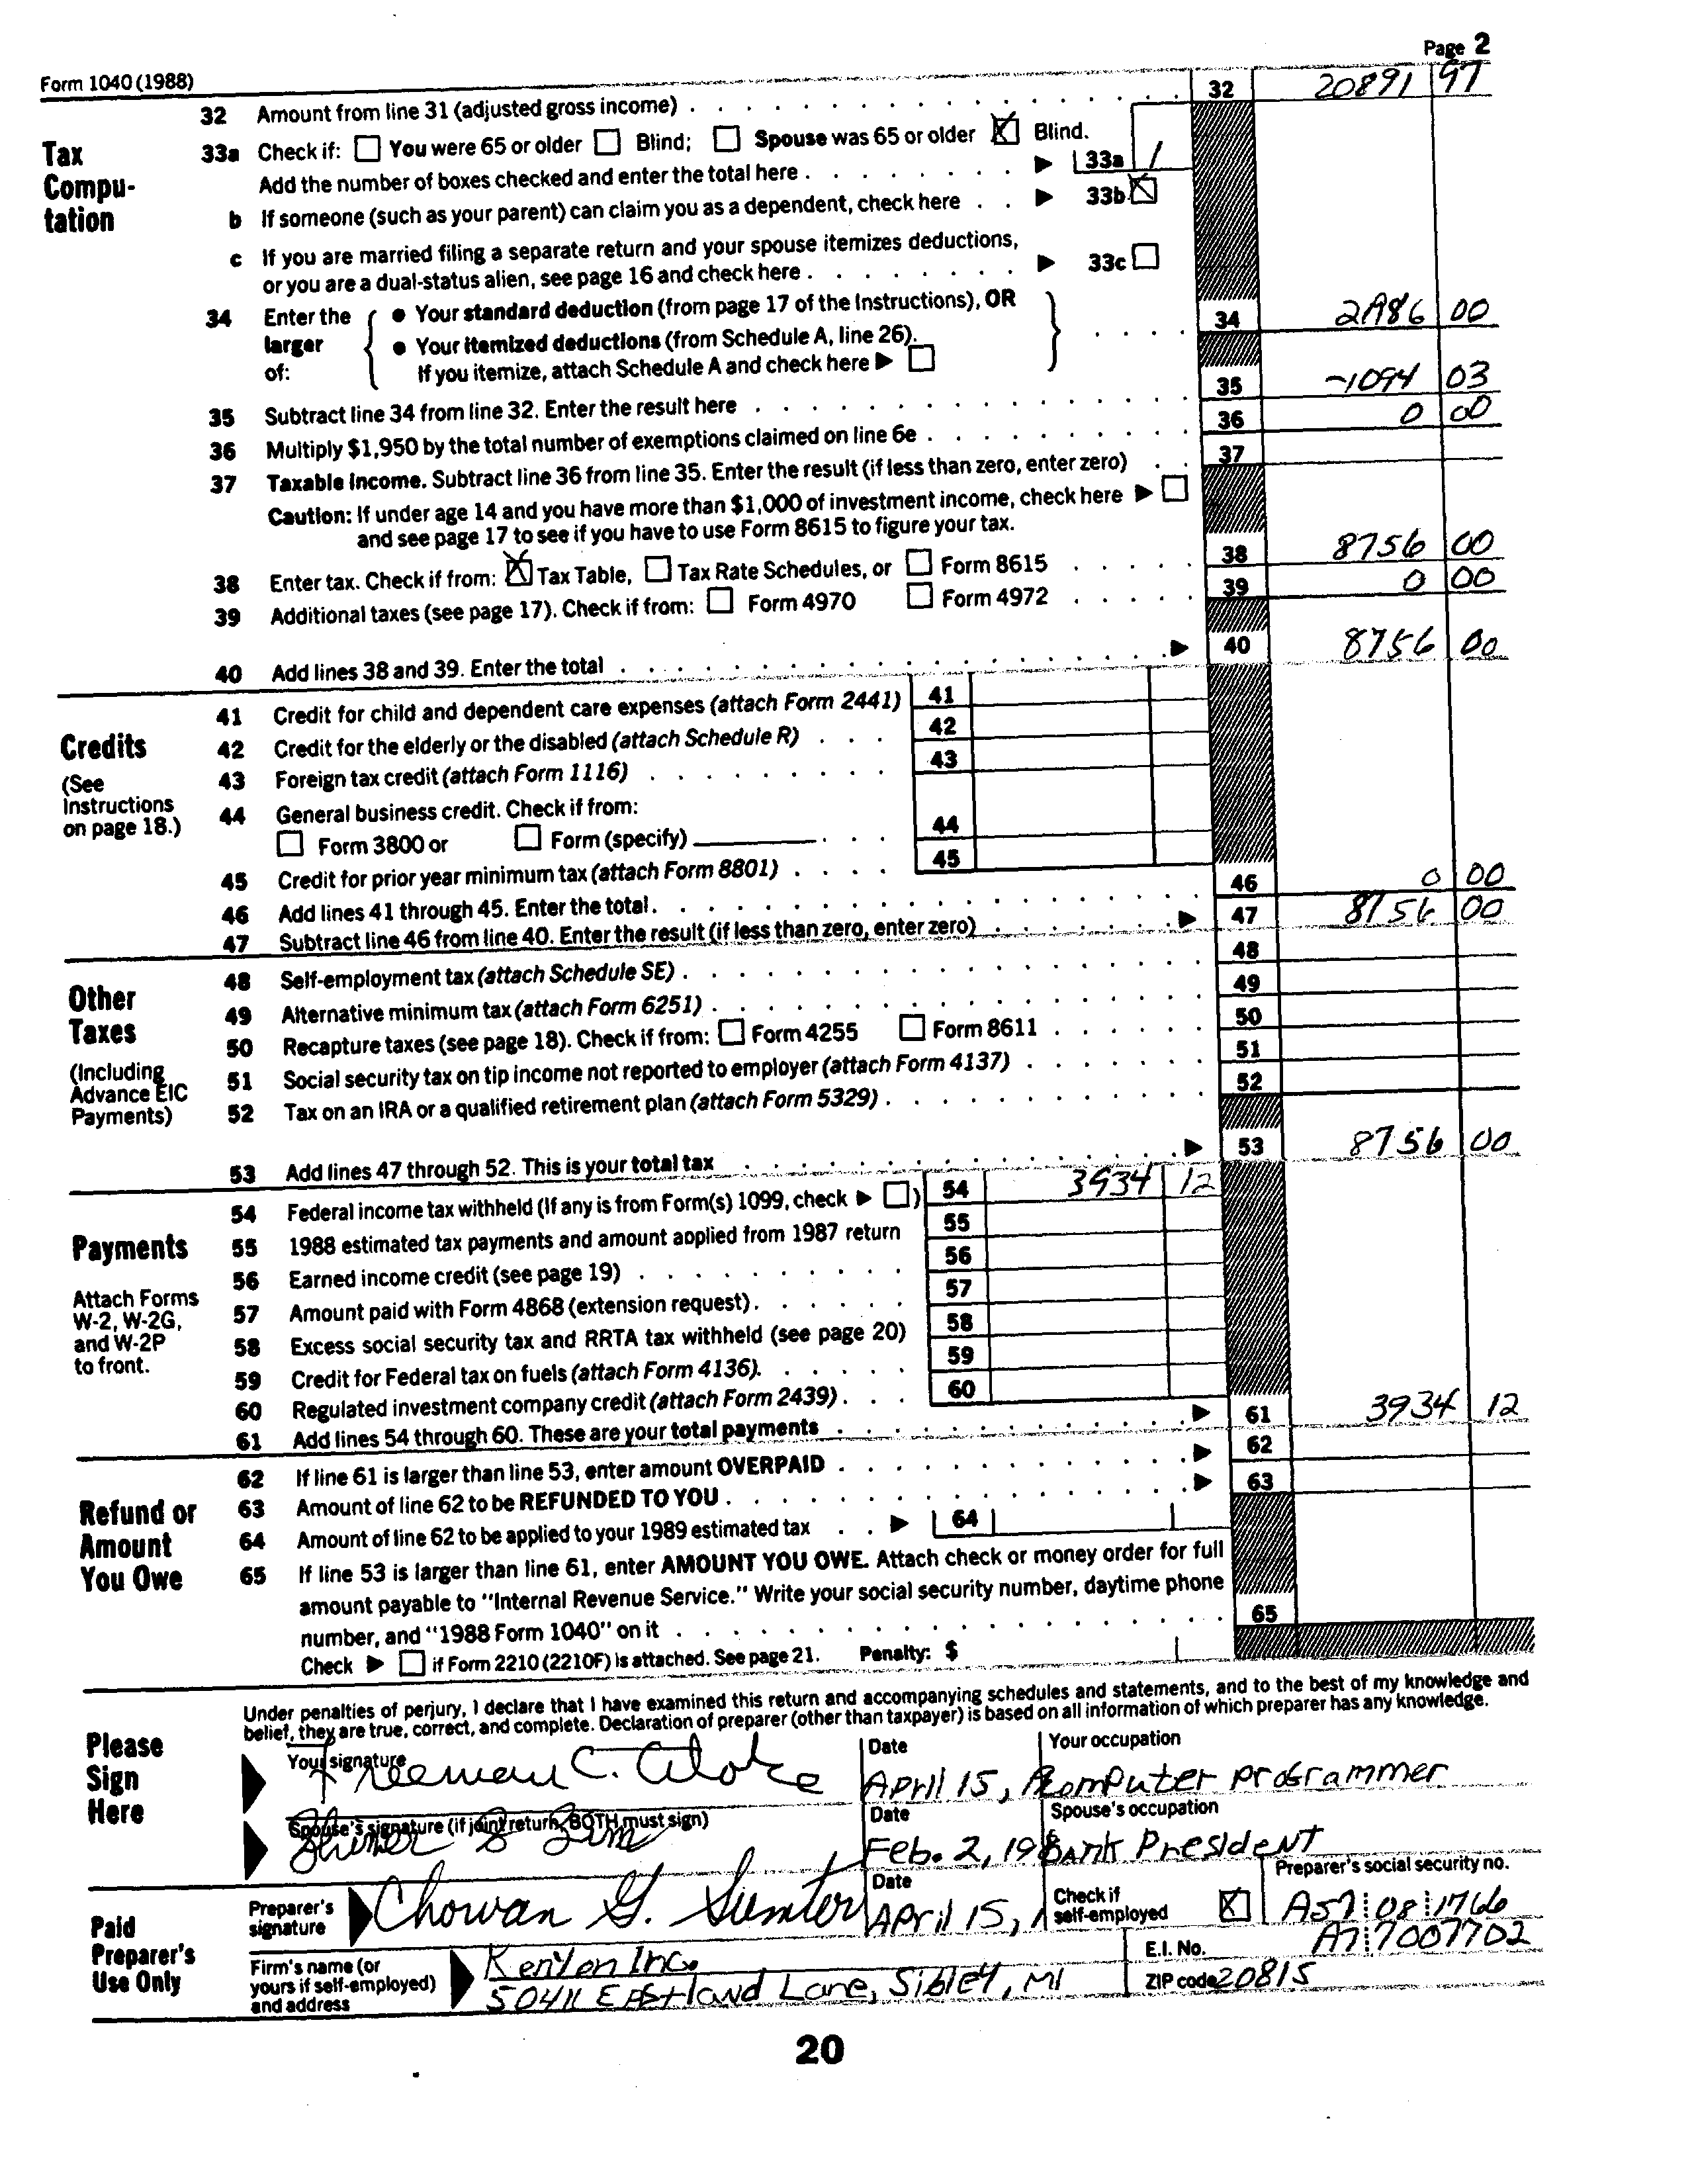 Page 2
Form 1040 (1988)
32 Amount from line 31 (adjusted gross income) 32 20891 97
Tax Compu-tation
33a Check if: You were 65 or older Blind; Spouse was 65 or older Blind.
Add the number of boxes checked and enter the total here 33a 1
b If someone (such as your parent) can claim you as a dependent, check here 33b
c If you are married filing a separate return and your spouse itemizes deductions,
or you are a dual-status alien, see page 16 and check here 33c
34 Enter the larger of:
● Your standard deduction (from page 17 of the Instructions), OR
● Your itemized deductions (from Schedule A, line 26).
If you itemize, attach Schedule A and check here
34 2A86 00
35 Subtract line 34 from line 32. Enter the result here 35 -1094 03
36 Multiply $1,950 by the total number of exemptions claimed on line 6e 36 0 00
37 Taxable income. Subtract line 36 from line 35. Enter the result (if less than zero, enter zero) 37
Caution: If under age 14 and you have more than $1,000 of investment income, check here
and see page 17 to see if you have to use Form 8615 to figure your tax.
38 Enter tax. Check if from: Tax Table, Tax Rate Schedules, or Form 8615 38 8756 00
39 Additional taxes (see page 17). Check if from: Form 4970 Form 4972 39 0 00
40 Add lines 38 and 39. Enter the total 40 8756 00
Credits
(See Instructions on page 18.)
41 Credit for child and dependent care expenses (attach Form 2441) 41
42 Credit for the elderly or the disabled (attach Schedule R) 42
43 Foreign tax credit (attach Form 1116) 43
44 General business credit. Check if from:
Form 3800 or Form (specify) 44
45 Credit for prior year minimum tax (attach Form 8801) 45
46 Add lines 41 through 45. Enter the total. 46 0 00
47 Subtract line 46 from line 40. Enter the result (if less than zero, enter zero) 47 8756 00
Other Taxes
(Including Advance EIC Payments)
48 Self-employment tax (attach Schedule SE) 48
49 Alternative minimum tax (attach Form 6251) 49
50 Recapture taxes (see page 18). Check if from: Form 4255 Form 8611 50
51 Social security tax on tip income not reported to employer (attach Form 4137) 51
52 Tax on an IRA or a qualified retirement plan (attach Form 5329) 52
53 Add lines 47 through 52. This is your total tax 53 8756 00
Payments
Attach Forms W-2, W-2G, and W-2P to front.
54 Federal income tax withheld (If any is from Form(s) 1099, check ) 54 3934 12
55 1988 estimated tax payments and amount applied from 1987 return 55
56 Earned income credit (see page 19) 56
57 Amount paid with Form 4868 (extension request) 57
58 Excess social security tax and RRTA tax withheld (see page 20) 58
59 Credit for Federal tax on fuels (attach Form 4136). 59
60 Regulated investment company credit (attach Form 2439) 60
61 Add lines 54 through 60. These are your total payments 61 3934 12
Refund or Amount You Owe
62 If line 61 is larger than line 53, enter amount OVERPAID 62
63 Amount of line 62 to be REFUNDED TO YOU 63
64 Amount of line 62 to be applied to your 1989 estimated tax 64
65 If line 53 is larger than line 61, enter AMOUNT YOU OWE. Attach check or money order for full
amount payable to "Internal Revenue Service." Write your social security number, daytime phone
number, and "1988 Form 1040" on it 65
Check if Form 2210 (2210F) is attached. See page 21. Penalty: $
Please Sign Here
Under penalties of perjury, I declare that I have examined this return and accompanying schedules and statements, and to the best of my knowledge and
belief, they are true, correct, and complete. Declaration of preparer (other than taxpayer) is based on all information of which preparer has any knowledge.
Your signature Date Your occupation
Freeman C. April 15, Computer programmer
Spouse's signature (if joint return, BOTH must sign) Date Spouse's occupation
Feb. 2, 198 Bank President
Paid Preparer's Use Only
Preparer's signature Date Check if self-employed Preparer's social security no.
Chowan G. Sumter April 15, 1 A57 08 1766
Firm's name (or yours if self-employed) and address
Kenyon Inc. E.I. No. A7 7007702
50411 Eastland Lane, Sibley, MI ZIP code 20815
20